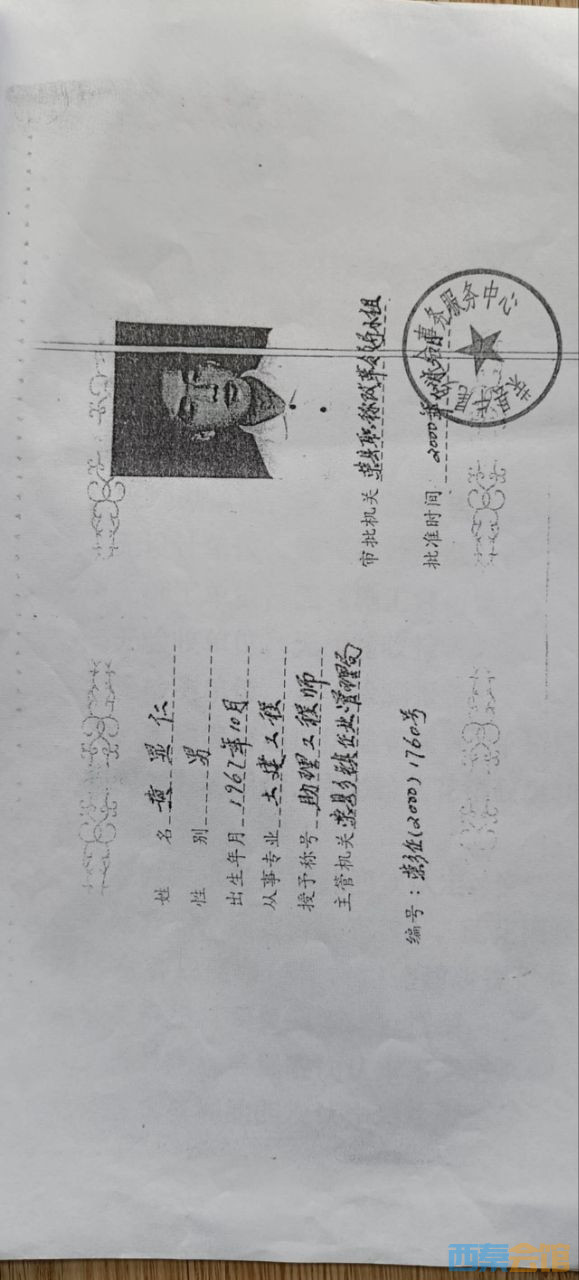 姓 名 黄显仁
性 别 男
出生年月 1967年10月
从事专业 土建工程
授予称号 助理工程师
主管机关 荣县乡镇企业管理局
编号：荣乡企(2000)1760号
审批机关 荣县职称改革领导小组
批准时间 2000年
事务服务中心